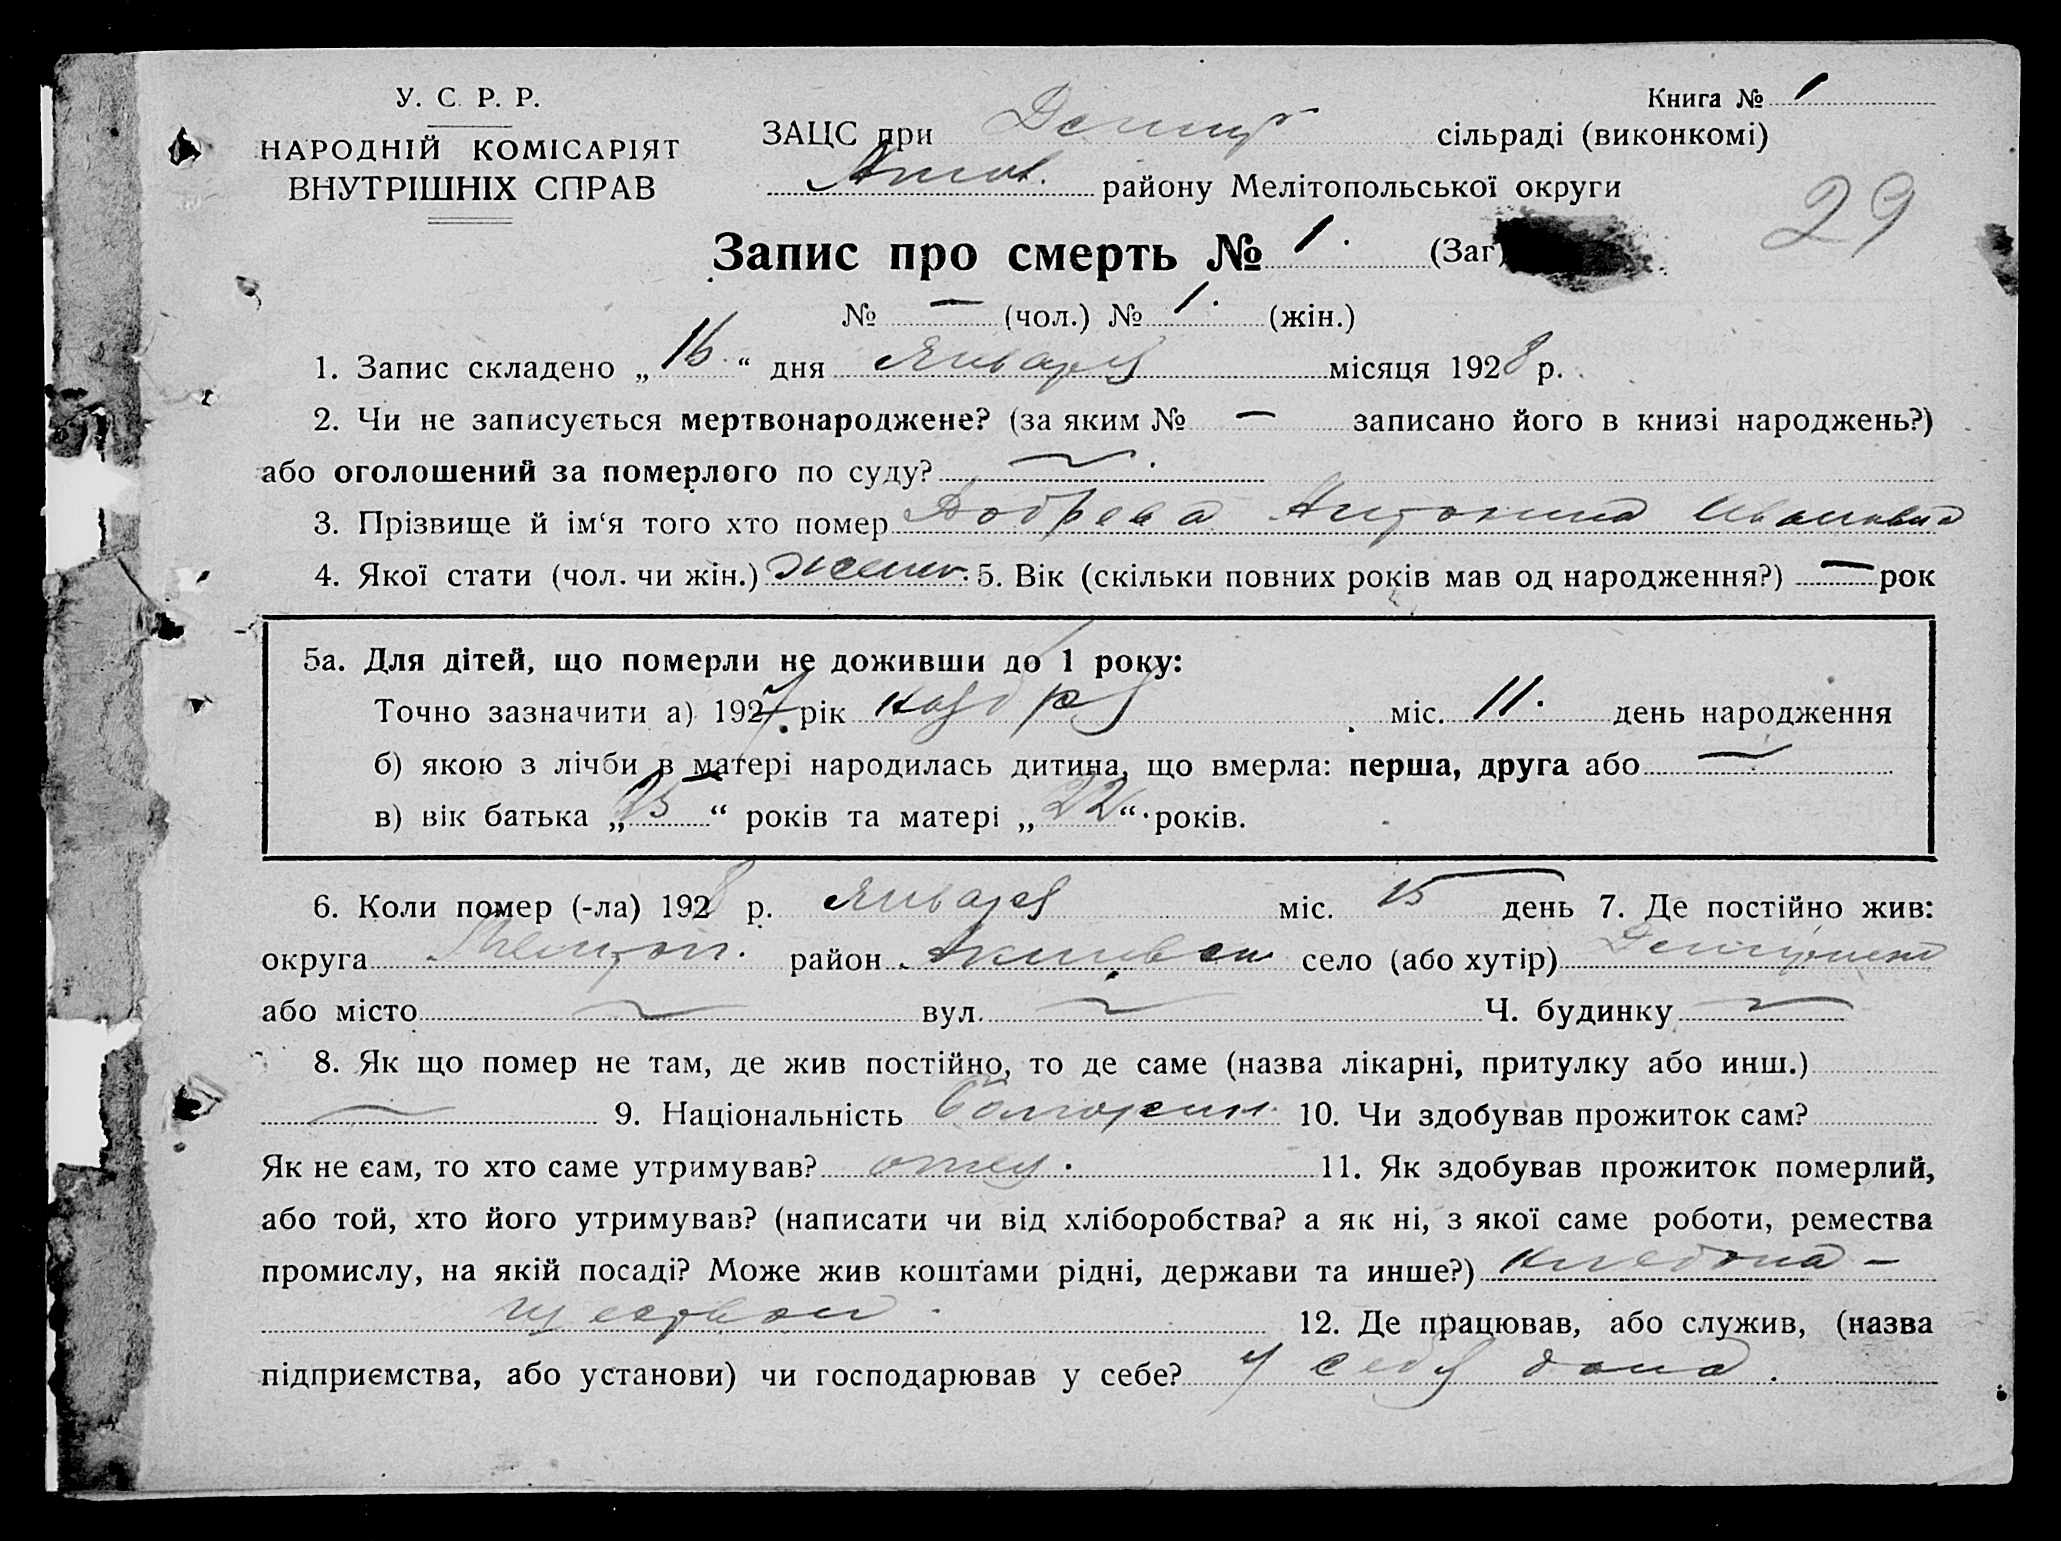 У. С. Р. Р.
НАРОДНІЙ КОМІСАРІЯТ
ВНУТРІШНІХ СПРАВ
Книга № 1
ЗАЦС при сільраді (виконкомі)
Аким. району Мелітопольської округи
29
Запис про смерть № 1. (Заг
№ — (чол.) № 1. (жін.)
1. Запис складено „ 16 “ дня Января місяця 1928 р.
2. Чи не записується мертвонароджене? (за яким № — записано його в книзі народжень?)
або оголошений за померлого по суду? —
3. Прізвище й ім‘я того хто помер Добрева Антонина Ивановна
4. Якої стати (чол. чи жін.) женс. 5. Вік (скільки повних років мав од народження?) — рок
5а. Для дітей, що померли не доживши до 1 року:
Точно зазначити а) 1927 рік ноября міс. 11. день народження
б) якою з лічби в матері народилась дитина, що вмерла: перша, друга або —
в) вік батька „ 25 “ років та матері „ 22 “ років.
6. Коли помер (-ла) 1928 р. Января міс. 15 день 7. Де постійно жив:
округа Мелитоп. район село (або хутір)
або місто — вул. — Ч. будинку —
8. Як що помер не там, де жив постійно, то де саме (назва лікарні, притулку або инш.)
— 9. Національність 10. Чи здобував прожиток сам?
Як не сам, то хто саме утримував? отец. 11. Як здобував прожиток померлий,
або той, хто його утримував? (написати чи від хліборобства? а як ні, з якої саме роботи, ремества
промислу, на якій посаді? Може жив коштами рідні, держави та инше?) хлебопа-
шеством. 12. Де працював, або служив, (назва
підприємства, або установи) чи господарював у себе? у себя дома.